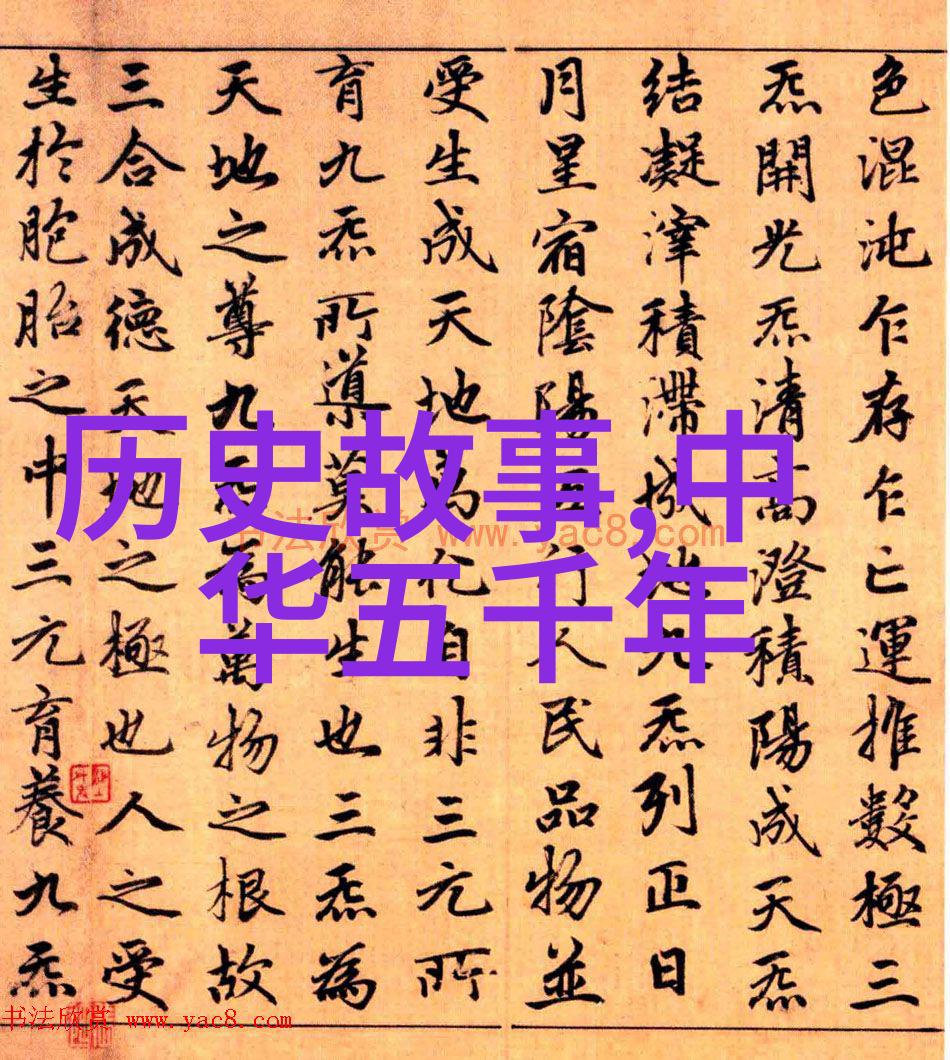 色混沌乍存乍亡運推數極三
炁開光炁清高澄積陽成天炁
結凝滓積滯成地九炁列正日
月星宿陰陽五行人民品物並
受生成天地萬化自非三元所
育九炁所導莫能生也三炁為
天地之尊九炁為萬物之根故
三合成德天地之極也人之受
生於胞胎之中三元育養九炁
历史故事,中
华五千年
书法欣赏 www.yac8.com
书法欣赏 www.yac8.com